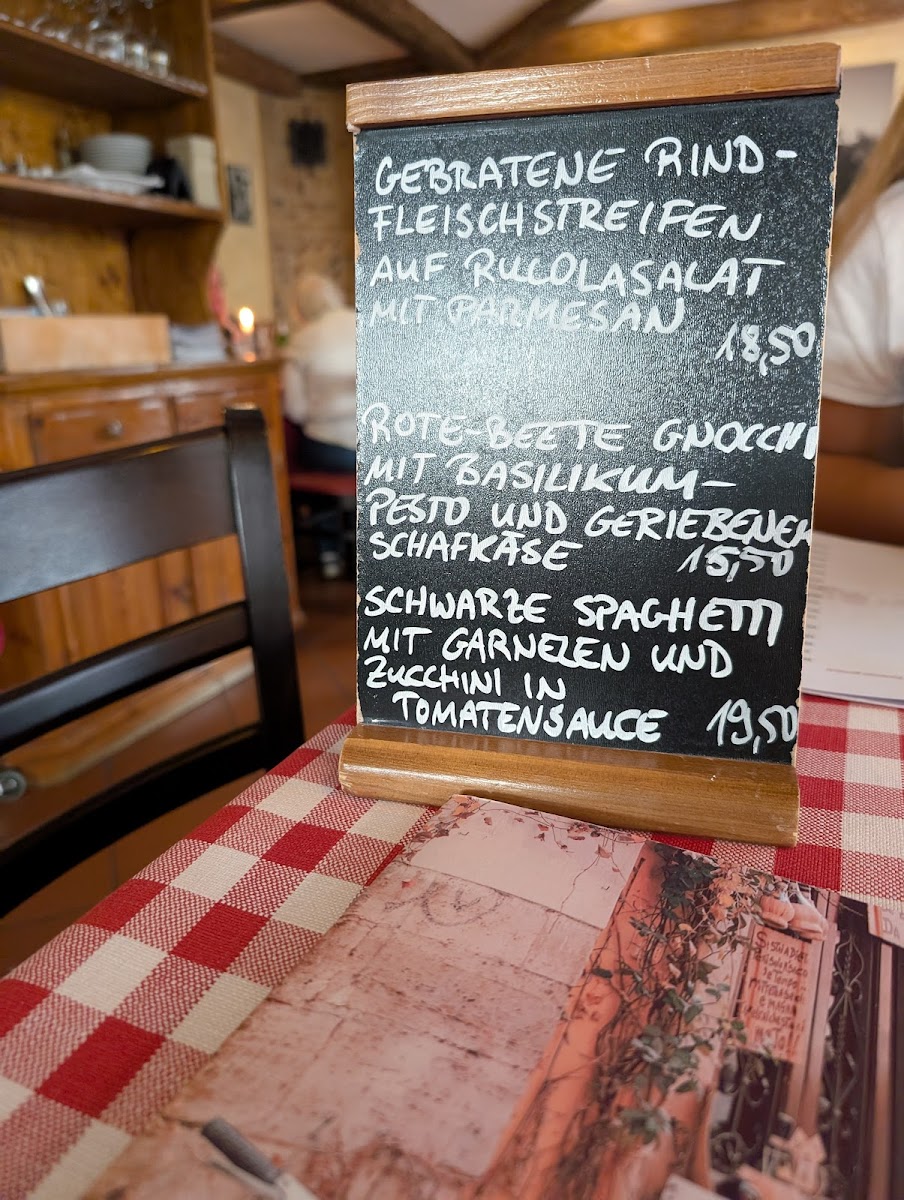 GEBRATENE RIND-
FLEISCHSTREIFEN
AUF RUCOLASALAT
MIT PARMESAN
18,50
ROTE-BEETE GNOCCHI
MIT BASILIKUM-
PESTO UND GERIEBENEN
SCHAFKÄSE 15,50
SCHWARZE SPAGHETTI
MIT GARNELEN UND
ZUCCHINI IN
TOMATENSAUCE 19,50